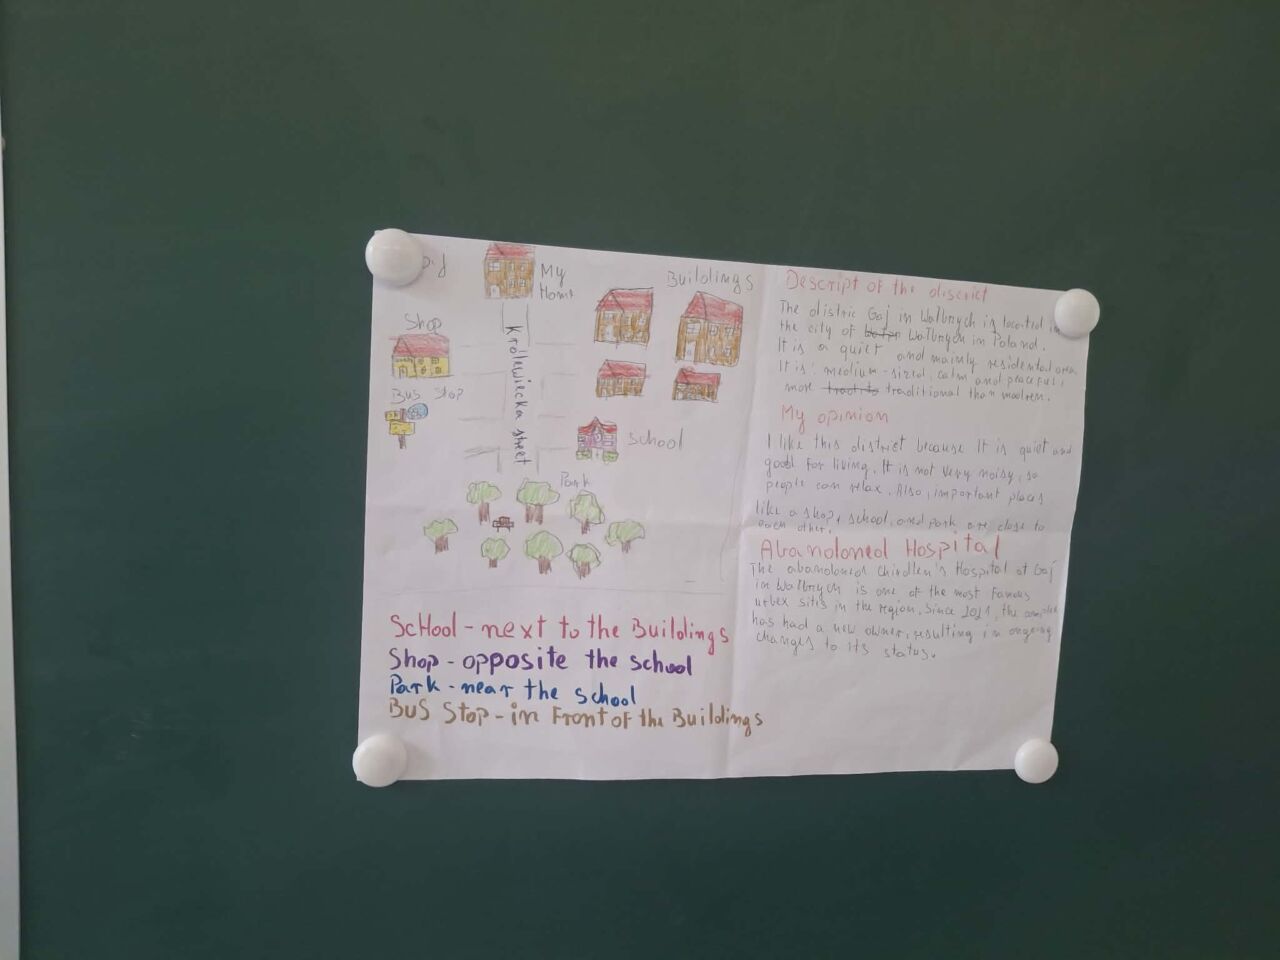 My
Home
Buildings
Shop
Bus Stop
Królewiecka street
School
Park
ScHool - next to the Buildings
Shop - opposite the school
Park - near the school
BUS Stop - in Front of the Buildings
Descript of the district
The distric Gaj in Walbrzych is located in
the city of Walbrzych in Poland.
It is a quiet and mainly residental area
It is: medium-sized, calm and peaceful,
more traditional than modren.
My opinion
I like this district because It is quiet and
good for living. It is not very noisy, so
people can relax. Also, important places
like a shop, school, and park are close to
each other.
Abandoned Hospital
The abandoned Chirdlen's Hospital at Gaj
in Walbrzych is one of the most famous
urbex sites in the region. Since 2021, the
has had a new owner, resulting in ongoing
changes to its status.